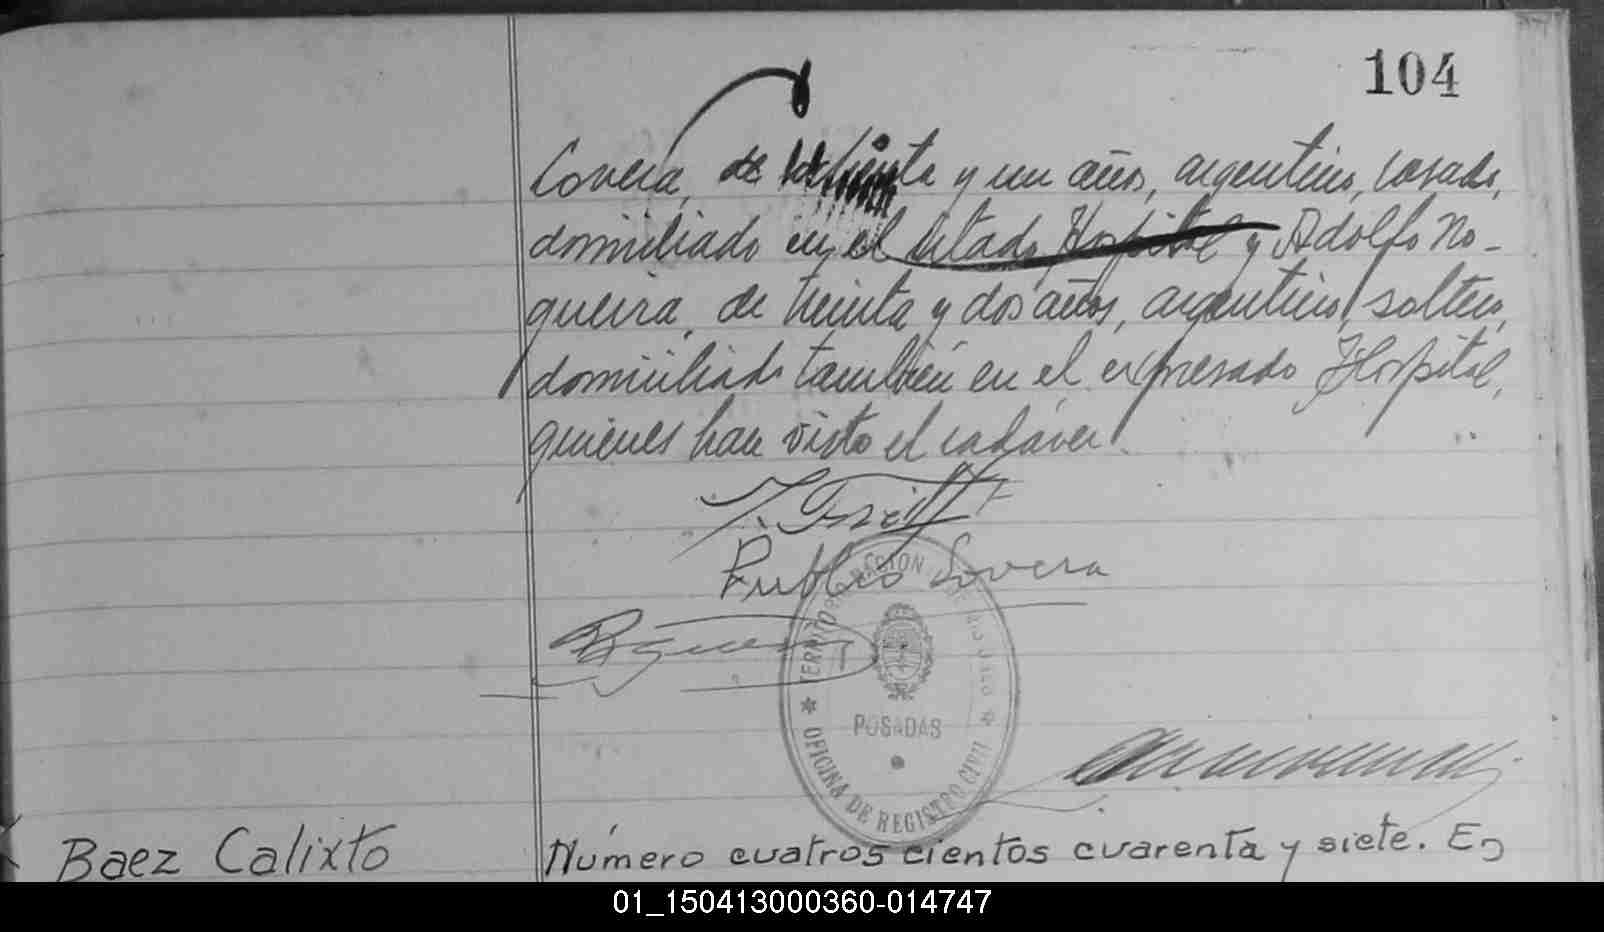 104
Lovera, de treinta y un años, argentino, casado,
domiciliado en el citado Hospital y Adolfo No-
gueira, de treinta y dos años, argentino, soltero,
domiciliado también en el expresado Hospital,
quienes han visto el cadáver.
Publio Lovera
TERRITORIO NACION
POSADAS
OFICINA DE REGISTRO CIVIL
Baez Calixto
Número cuatros cientos cuarenta y siete. En
01_150413000360-014747